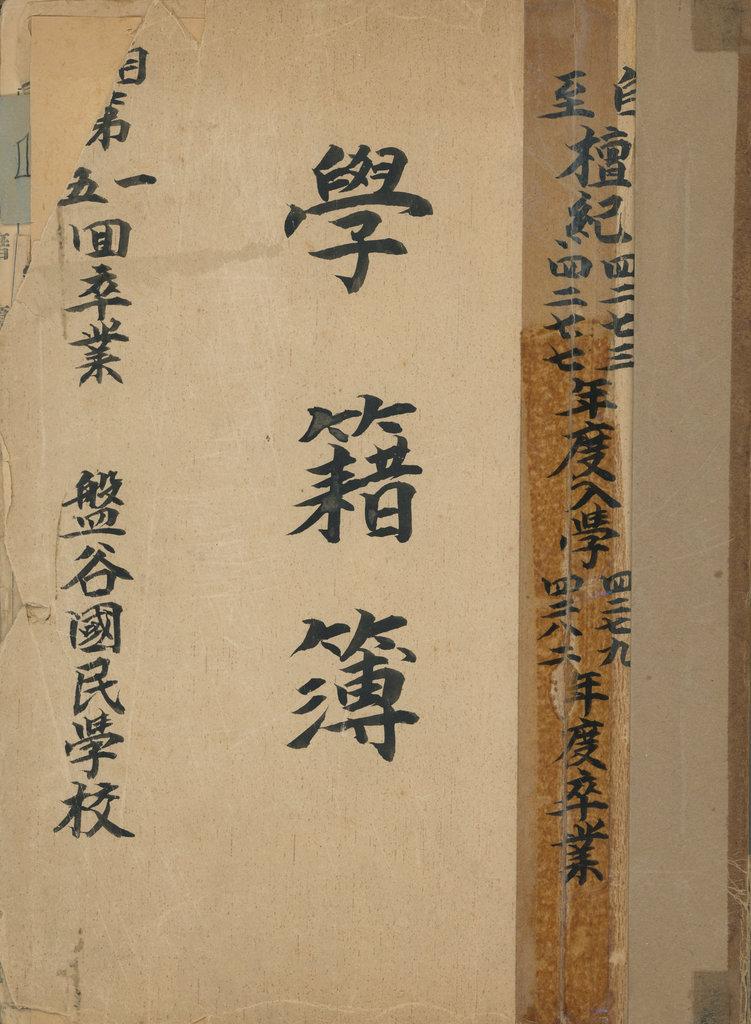 自至檀紀四二七三四二七七年度入學四二七九四二八二年度卒業
學籍簿
自第一五回卒業 盤谷國民學校